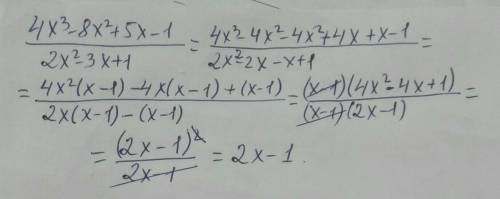 (4x³-8x²+5x-1)/(2x²-3x+1) = (4x³-4x²-4x²+4x+x-1)/(2x²-2x-x+1) =
= (4x²(x-1)-4x(x-1)+(x-1))/(2x(x-1)-(x-1)) = ((x-1)(4x²-4x+1))/((x-1)(2x-1)) =
= (2x-1)²/(2x-1) = 2x-1.